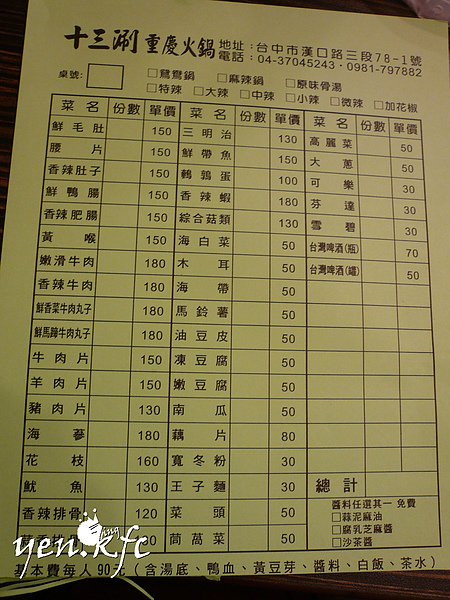 十三涮 重慶火鍋 地址：台中市漢口路三段78-1號
電話：04-37045243・0981-797882
桌號：□鴛鴦鍋 □麻辣鍋 □原味骨湯
□特辣 □大辣 □中辣 □小辣 □微辣 □加花椒
菜名 份數 單價 菜名 份數 單價 菜名 份數 單價
鮮毛肚 150 三明治 130 高麗菜 50
腰片 150 鮮帶魚 150 大蔥 50
香辣肚子 150 鵪鶉蛋 100 可樂 30
鮮鴨腸 150 香辣蝦 180 芬達 30
香辣肥腸 150 綜合菇類 130 雪碧 30
黃喉 150 海白菜 50 台灣啤酒(瓶) 70
嫩滑牛肉 150 木耳 50 台灣啤酒(罐) 50
香辣牛肉 150 海帶 50
鮮香菜牛肉丸子 180 馬鈴薯 50
鮮馬蹄牛肉丸子 180 油豆皮 50
牛肉片 150 凍豆腐 50
羊肉片 150 嫩豆腐 50
豬肉片 130 南瓜 50
海蔘 180 藕片 80
花枝 160 寬冬粉 30 總計
魷魚 130 王子麵 30 醬料任選其一 免費
香辣排骨 120 菜頭 50 □蒜泥麻油
茼萵菜 50 □腐乳芝麻醬
□沙茶醬
基本費每人90元（含湯底、鴨血、黃豆芽、醬料、白飯、茶水）
yen.kfc